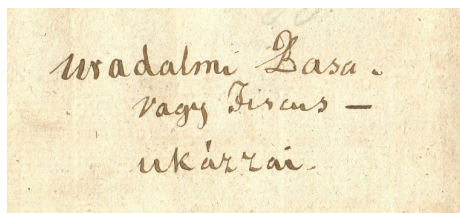 uradalmi Basa.
vagy Fiscus –
ukázzai.